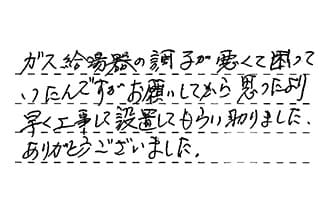 ガス給湯器の調子が悪くて困って
いたんですがお願いしてから思ったより
早く工事して設置してもらい助りました、
ありがとうございました。